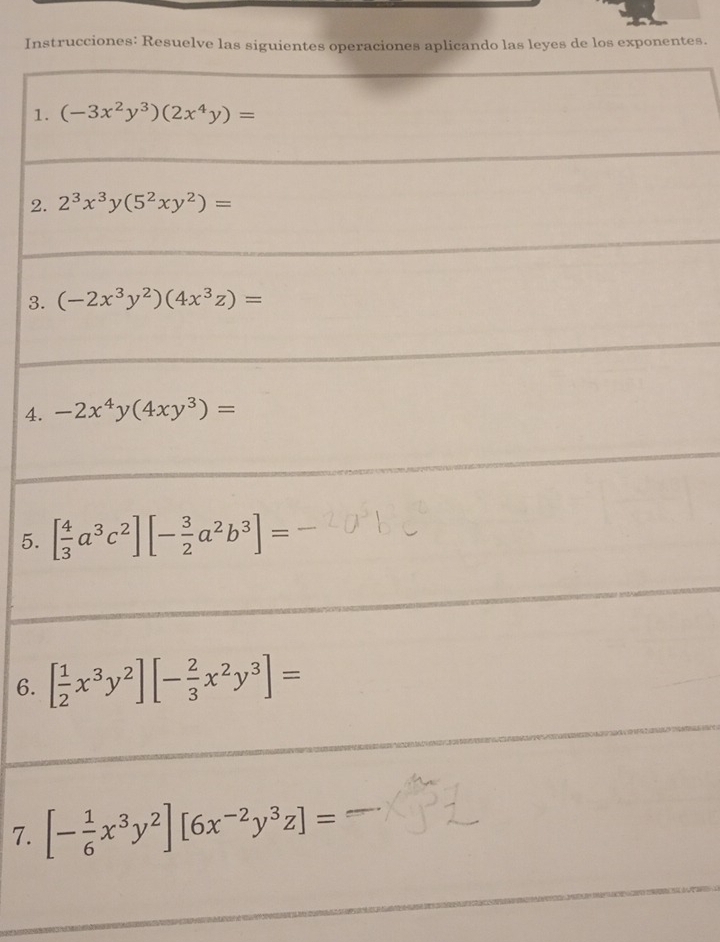 Instrucciones: Resuelve las siguientes operaciones aplicando las leyes de los exponentes.
1. (−3x²y³)(2x⁴y) =
2. 2³x³y(5²xy²) =
3. (−2x³y²)(4x³z) =
4. −2x⁴y(4xy³) =
5. [4/3 a³c²][−3/2 a²b³] = −2a⁵b³c²
6. [1/2 x³y²][−2/3 x²y³] =
7. [−1/6 x³y²][6x⁻²y³z] = −xy⁵z